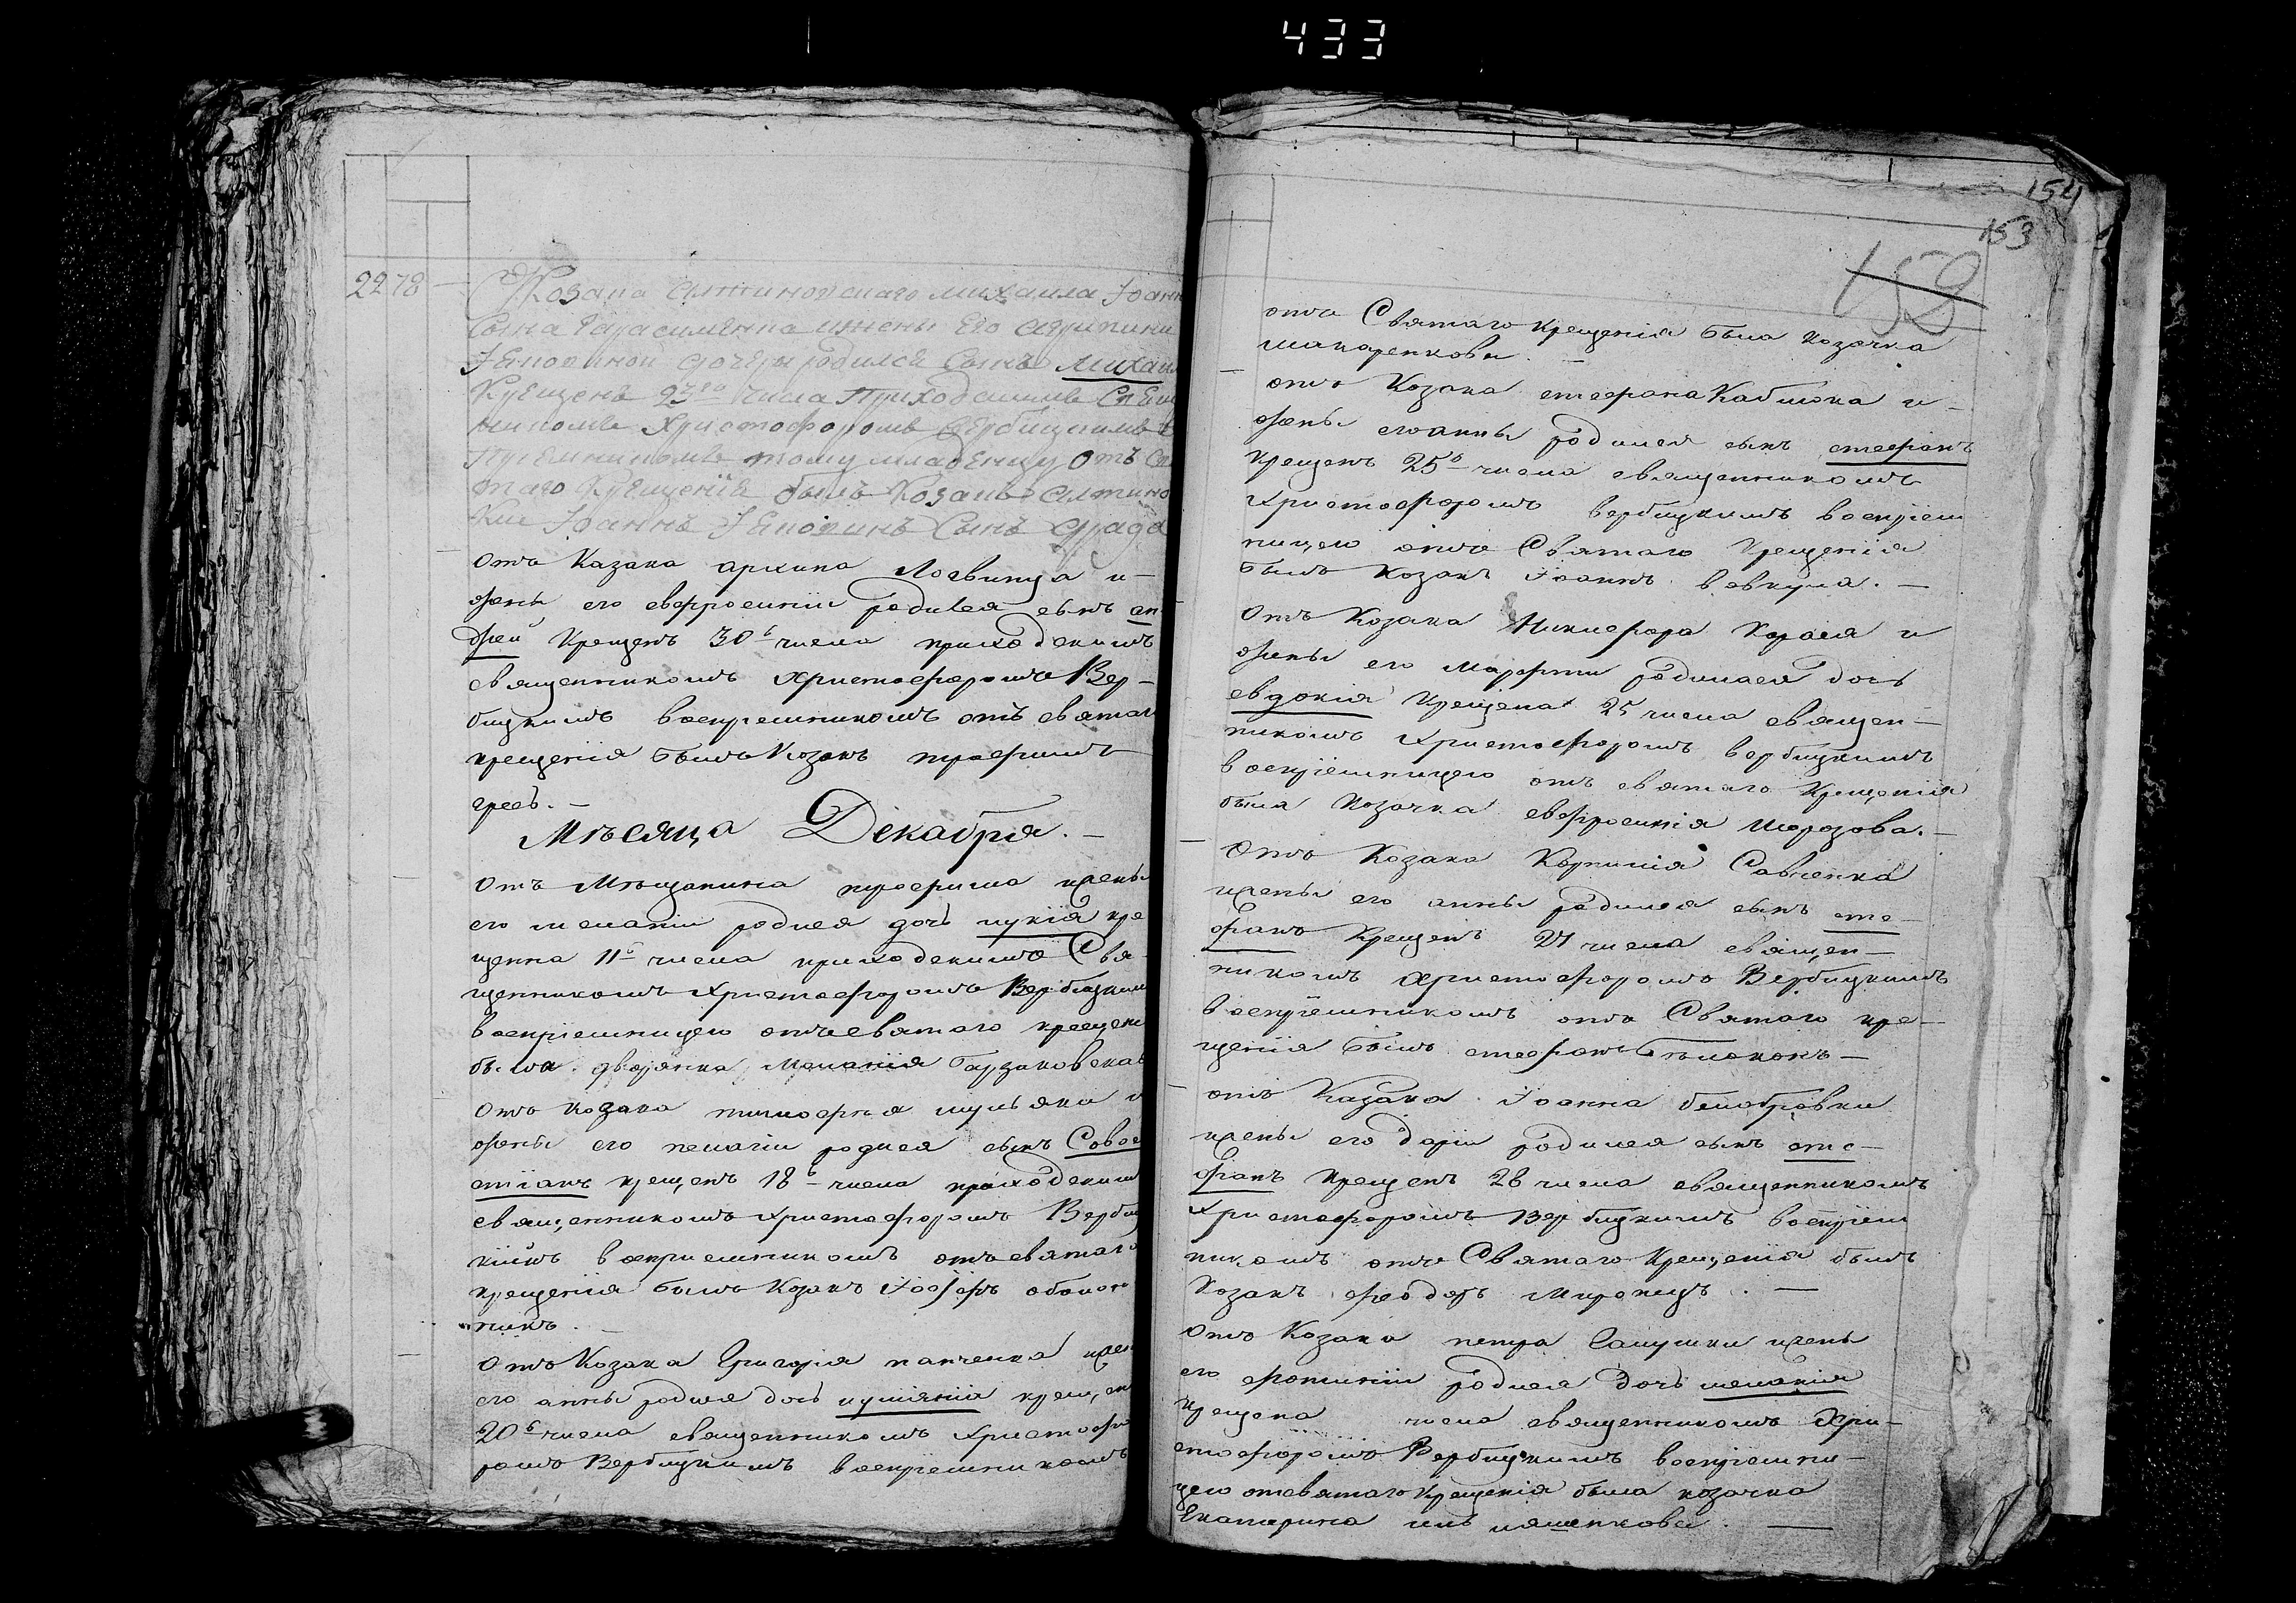 433
22 78
Козака Иоанн
Сына Герасименка и жены его Агрипины
дочери родился сынъ Михаил
Крещенъ 23го числа Приходскимъ
Христофоромъ Вербицкимъ
тому младенцу отъ
таго Крещенія былъ Козакъ
Іоаннъ Сынъ
отъ Казака архипа Логвинца и
жены его евфросиніи родился сынъ ан
дрей Крещенъ 30 числа приходскимъ
священникомъ Христофоромъ Вер-
бицкимъ воспріемникомъ отъ святаго
крещенія былъ Козакъ трофимъ
гресь. -
Мѣсяца Декабря. -
отъ Мѣщанина трофима жены
его меланіи родися дочь лукія кре
щенна 11 числа приходскимъ Свя-
щенникомъ Христофоромъ Вербицким
воспріемницею отъ святаго крещени
была дворянка Меланія
отъ козака тимофея и
жены его пелагіи родися сынъ Совос
тіанъ крещенъ 18 числа приходским
священникомъ Христофоромъ Вербиц
кимъ воспріемникомъ отъ святаго
крещенія былъ Козакъ Іосифъ
никъ. -
отъ Козака Григорія панченка жен
его анны родися дочь иуліянія крещен
20 числа священникомъ Христофо
ромъ Вербицкимъ воспріемникомъ
154
153
158
отъ Святаго крещенія была козачка
макаренкова. -
отъ Козака стефана Каблюка и -
жены его анны родился сынъ стефанъ
крещенъ 25 числа священникомъ
Христофоромъ вербицкимъ воспріем
ницею отъ Святаго Крещенія
былъ козакъ Іоаннъ вовкула. -
отъ Козака Никифора Короля и
жены его Марфы родилася дочь
евдокія Крещена 25 числа священ-
никомъ Христофоромъ вербицкимъ
воспріемницею отъ святаго Крещенія
была Козачка евфросинія Морозова. -
отъ Козака Корнилія Савченка
жены его анны родился сынъ сте-
фанъ Крещенъ 27 числа священ-
никомъ Христофоромъ Вербицкимъ
воспріемникомъ отъ Святаго кре-
щенія былъ стефанъ Бѣлоконь -
отъ Казака Іоанна белобровки
жены его даріи родился сынъ сте-
фанъ Крещенъ 28 числа священникомъ
Христофоромъ Вербицкимъ воспріем
никомъ отъ Святаго Крещенія былъ
Козакъ феодоръ Миронецъ. -
отъ Козака петра Галушки жены
его фотиніи родися дочь меланія
крещена числа священникомъ Хри-
стофоромъ Вербицкимъ воспріемни-
цею отсвятаго Крещенія была козачка
Екатерина